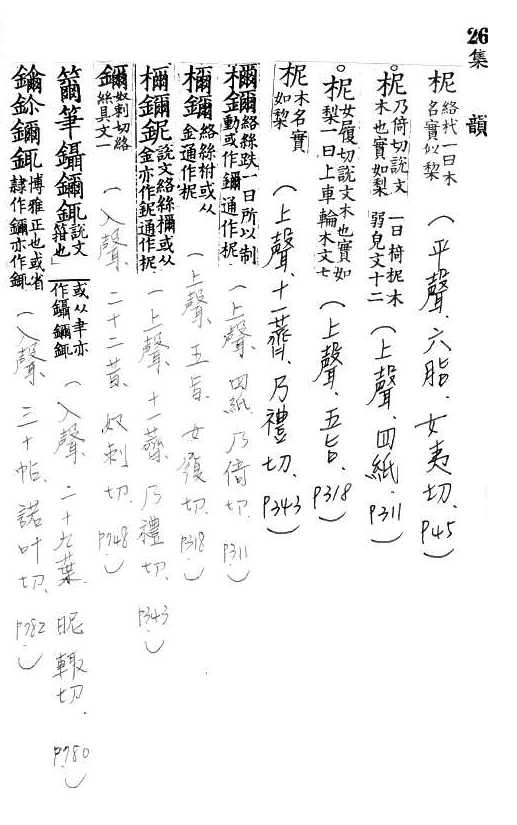 26
集韻
柅絡杙一曰木名實如棃(平聲、六脂、女夷切、P45)
柅乃倚切說文木也實如棃一曰椅柅木弱皃文十二(上聲、四紙、P311)
柅女履切說文木也實如棃一曰止車輪木文七(上聲、五旨、P318)
柅木名實如棃(上聲、十一薺、乃禮切、P343)
檷鑈絡絲趺一曰所以制動或作鑈通作柅(上聲、四紙、乃倚切、P311)
檷鑈絡絲柎或从金通作柅(上聲、五旨、女履切、P318)
檷鑈鈮說文絡絲檷或从金亦作鈮通作柅(上聲、十一薺、乃禮切、P343)
鑈奴刺切絡絲具文一(入聲、二十二昔、奴刺切、P748)
籋筆鑷鑈銸說文箝也或从聿亦作鑷鑈銸(入聲、二十九葉、昵輒切、P780)
鑈銸博雅正也或省隸作鑈亦作銸(入聲、三十帖、諾叶切、P782)